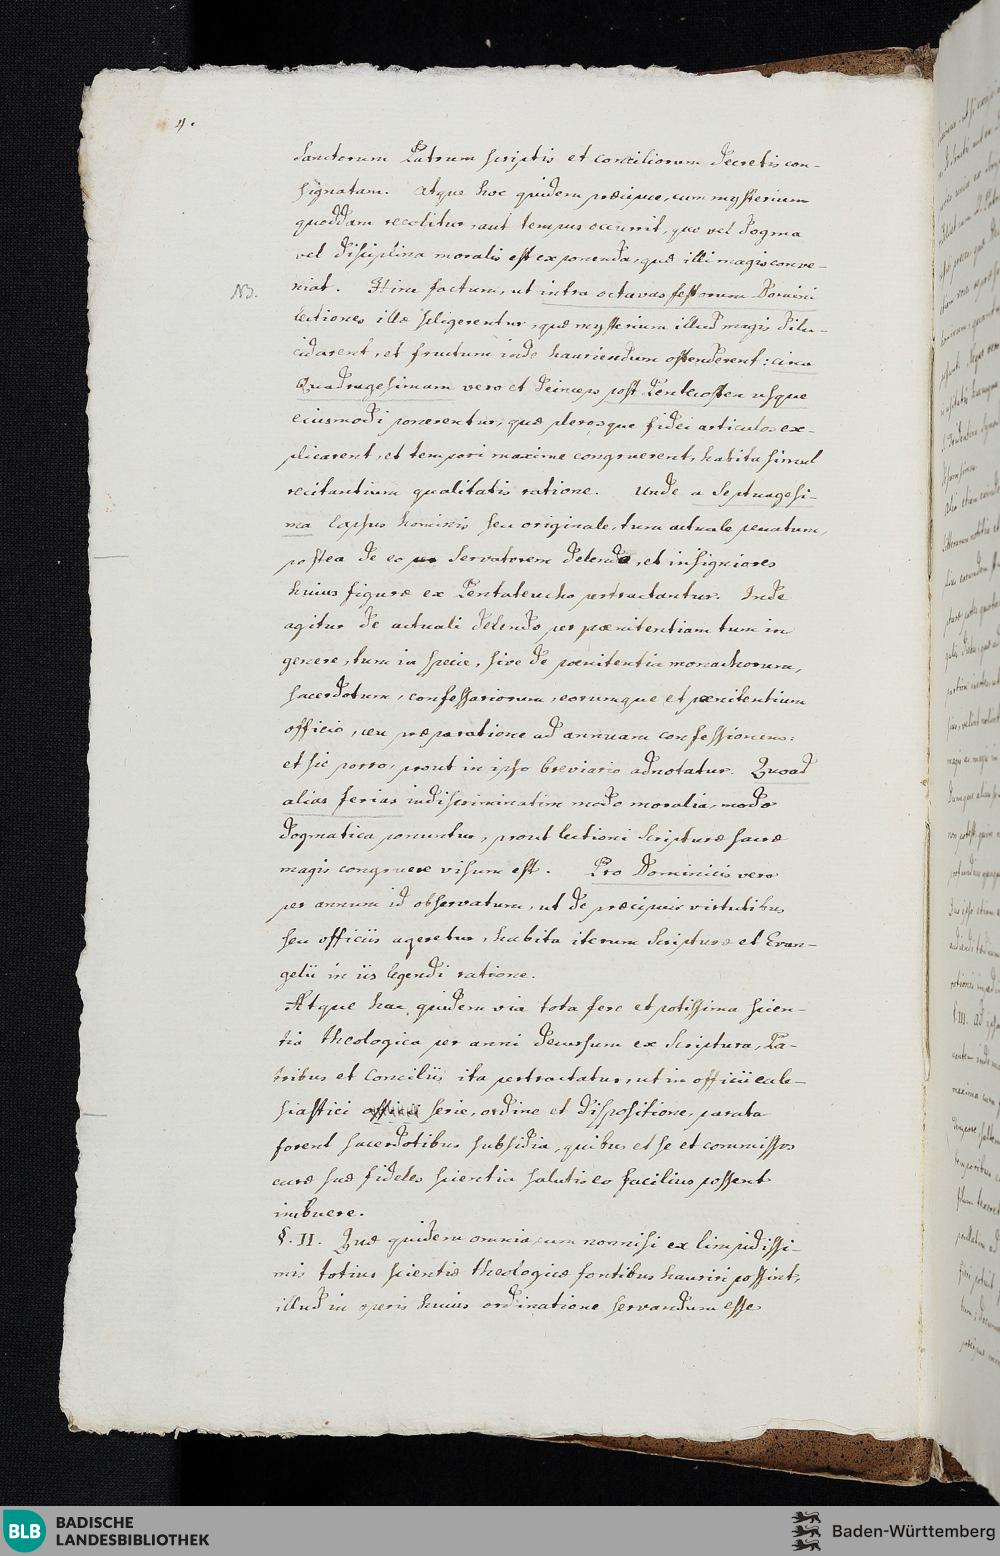 4.
Sanctorum Patrum scriptis et conciliorum decretis con-
signatam. Atque hoc quidem præcipue, cum mysterium
quoddam recolitur, aut tempus occurrit, quo vel dogma
vel disciplina moralis est exponenda, quæ illi magis conve-
NB.
niat. Hinc factum, ut intra octavas festorum Domini
lectiones illæ seligerentur, quæ mysterium illud magis dilu-
cidarent, et fructum inde hauriendum ostenderent: circa
Quadragesimam vero et deinceps post Pentecosten usque
eiusmodi ponerentur, quæ plerosque fidei articulos ex-
plicarent, et tempori maxime congruerent, habita simul
recitantium qualitatis ratione. Unde a Septuagesi-
ma lapsus hominis seu originale, tum actuale peccatum,
postea de eo per Servatorem delendo, et insigniores
huius figuræ ex Pentateucho pertractantur. Inde
agitur de actuali delendo per pœnitentiam tum in
genere, tum in specie, sive de pœnitentia monachorum,
sacerdotum, confessariorum, eorumque et pœnitentium
officio, ceu præparatione ad annuam confessionem:
et sic porro, prout in ipso breviario adnotatur. Quoad
alias ferias indiscriminatim modo moralia, modo
dogmatica ponuntur, prout lectioni Scripturæ sacræ
magis congruere visum est. Pro Dominicis vero
per annum id observatum, ut de præcipuis virtutibus
seu officiis ageretur, habita iterum Scripturæ et Evan-
gelii in iis legendi ratione.
Atque hac quidem via tota fere et potissima scien-
tia theologica per anni decursum ex Scriptura, Pa-
tribus et Conciliis ita pertractatur, ut in officii eccle-
siastici officii serie, ordine et dispositione, parata
forent sacerdotibus subsidia, quibus et se et commissos
curæ suæ fideles scientia salutis eo facilius possent
imbuere.
§. II. Quæ quidem omnia cum nonnisi ex limpidissi-
mis totius scientiæ theologicæ fontibus hauriri possint,
illud in operis huius ordinatione servandum esse
BLB
BADISCHE
LANDESBIBLIOTHEK
Baden-Württemberg